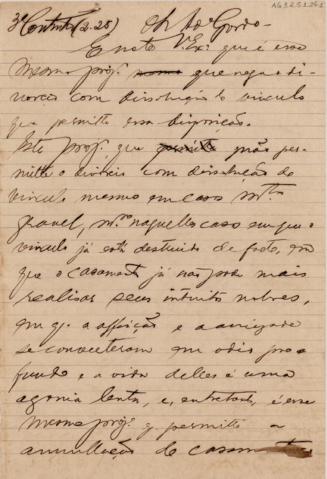 3ª Contin. (2-28) Ad. Gordo.
E note V. Exª. que é esse
mesmo proj. que nega o di-
vorcio com dissolução do vinculo
que permitte essa disposição.
Este proj. que não per-
mitte o divorcio com dissolução do
vinculo mesmo em caso mto.
grave, mmo. naquelles caso em que o
vinculo já está destruido de facto, em
que o casamento já não póde mais
realisar seus intuitos nobres,
em q. a affeição e a amizade
se converteram em odio pro-
fundo e a vida delles é uma
agonia lenta, e, entretanto, é esse
mesmo proj. q. permitte a
annullação de casamento